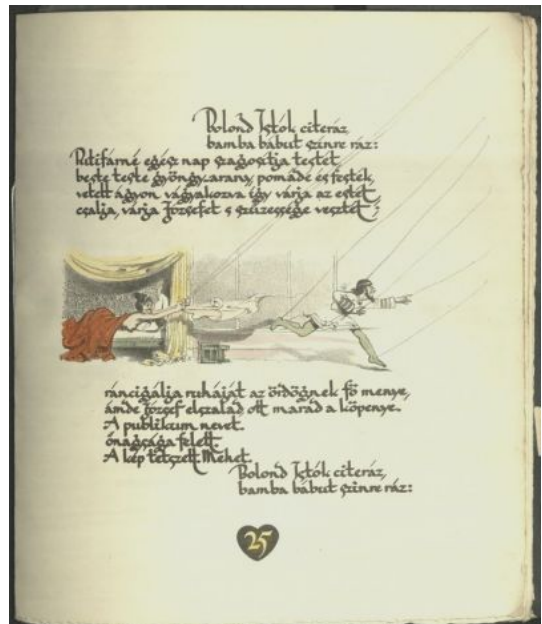 Bolond Istók citeráz,
bamba bábut szinre ráz:
Putifárné egész nap szagosítja testét,
beste teste gyöngy, arany, pomádé és festék,
vetett ágyon vágyakozva így várja az estét,
csalja, várja Józsefet s szüzessége vesztét;
ráncigálja ruháját az ördögnek fő menye,
ámde József elszalad ott marad a köpenye.
A publikum nevet.
őnagysága felett.
A kép tetszett. Mehet.
Bolond Istók citeráz,
bamba bábut szinre ráz:
25